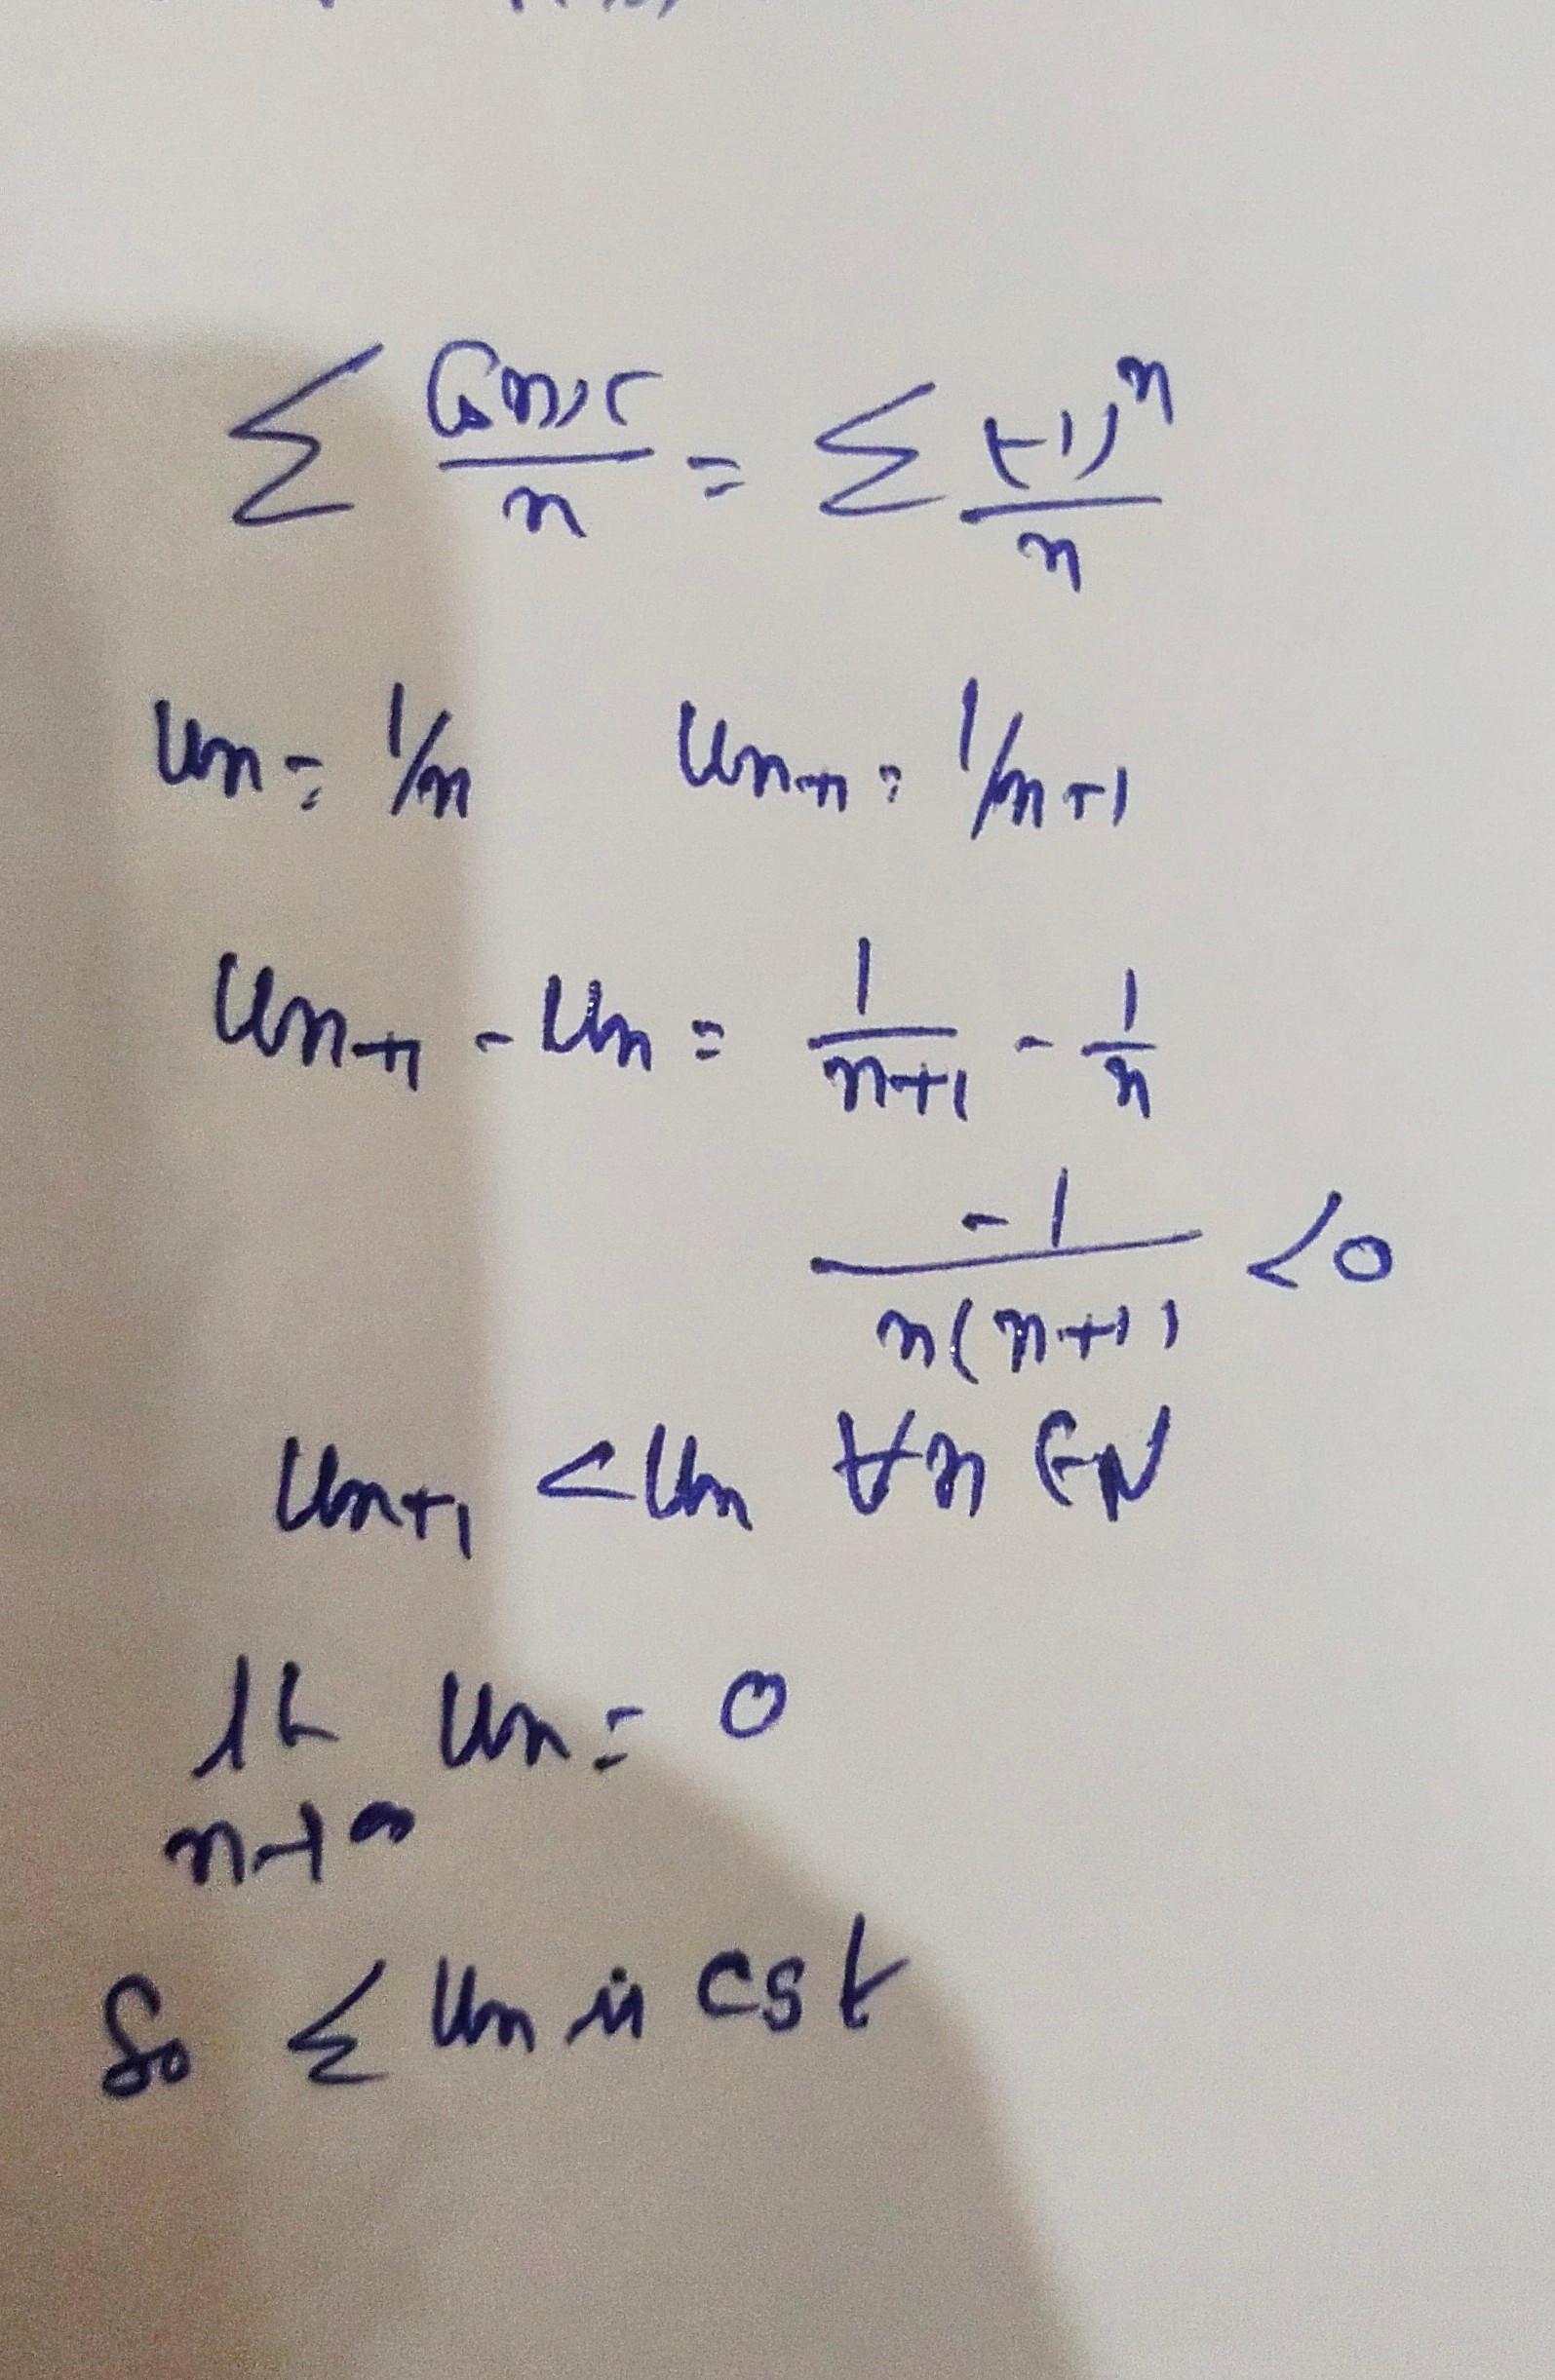 Σ Cos nπ / n = Σ (-1)^n / n
Un = 1/n   Un+1 = 1/n+1
Un+1 - Un = 1/(n+1) - 1/n
-1 / n(n+1) < 0
Un+1 < Un ∀ n ∈ N
lt Un = 0
n→∞
So Σ Un is cgt